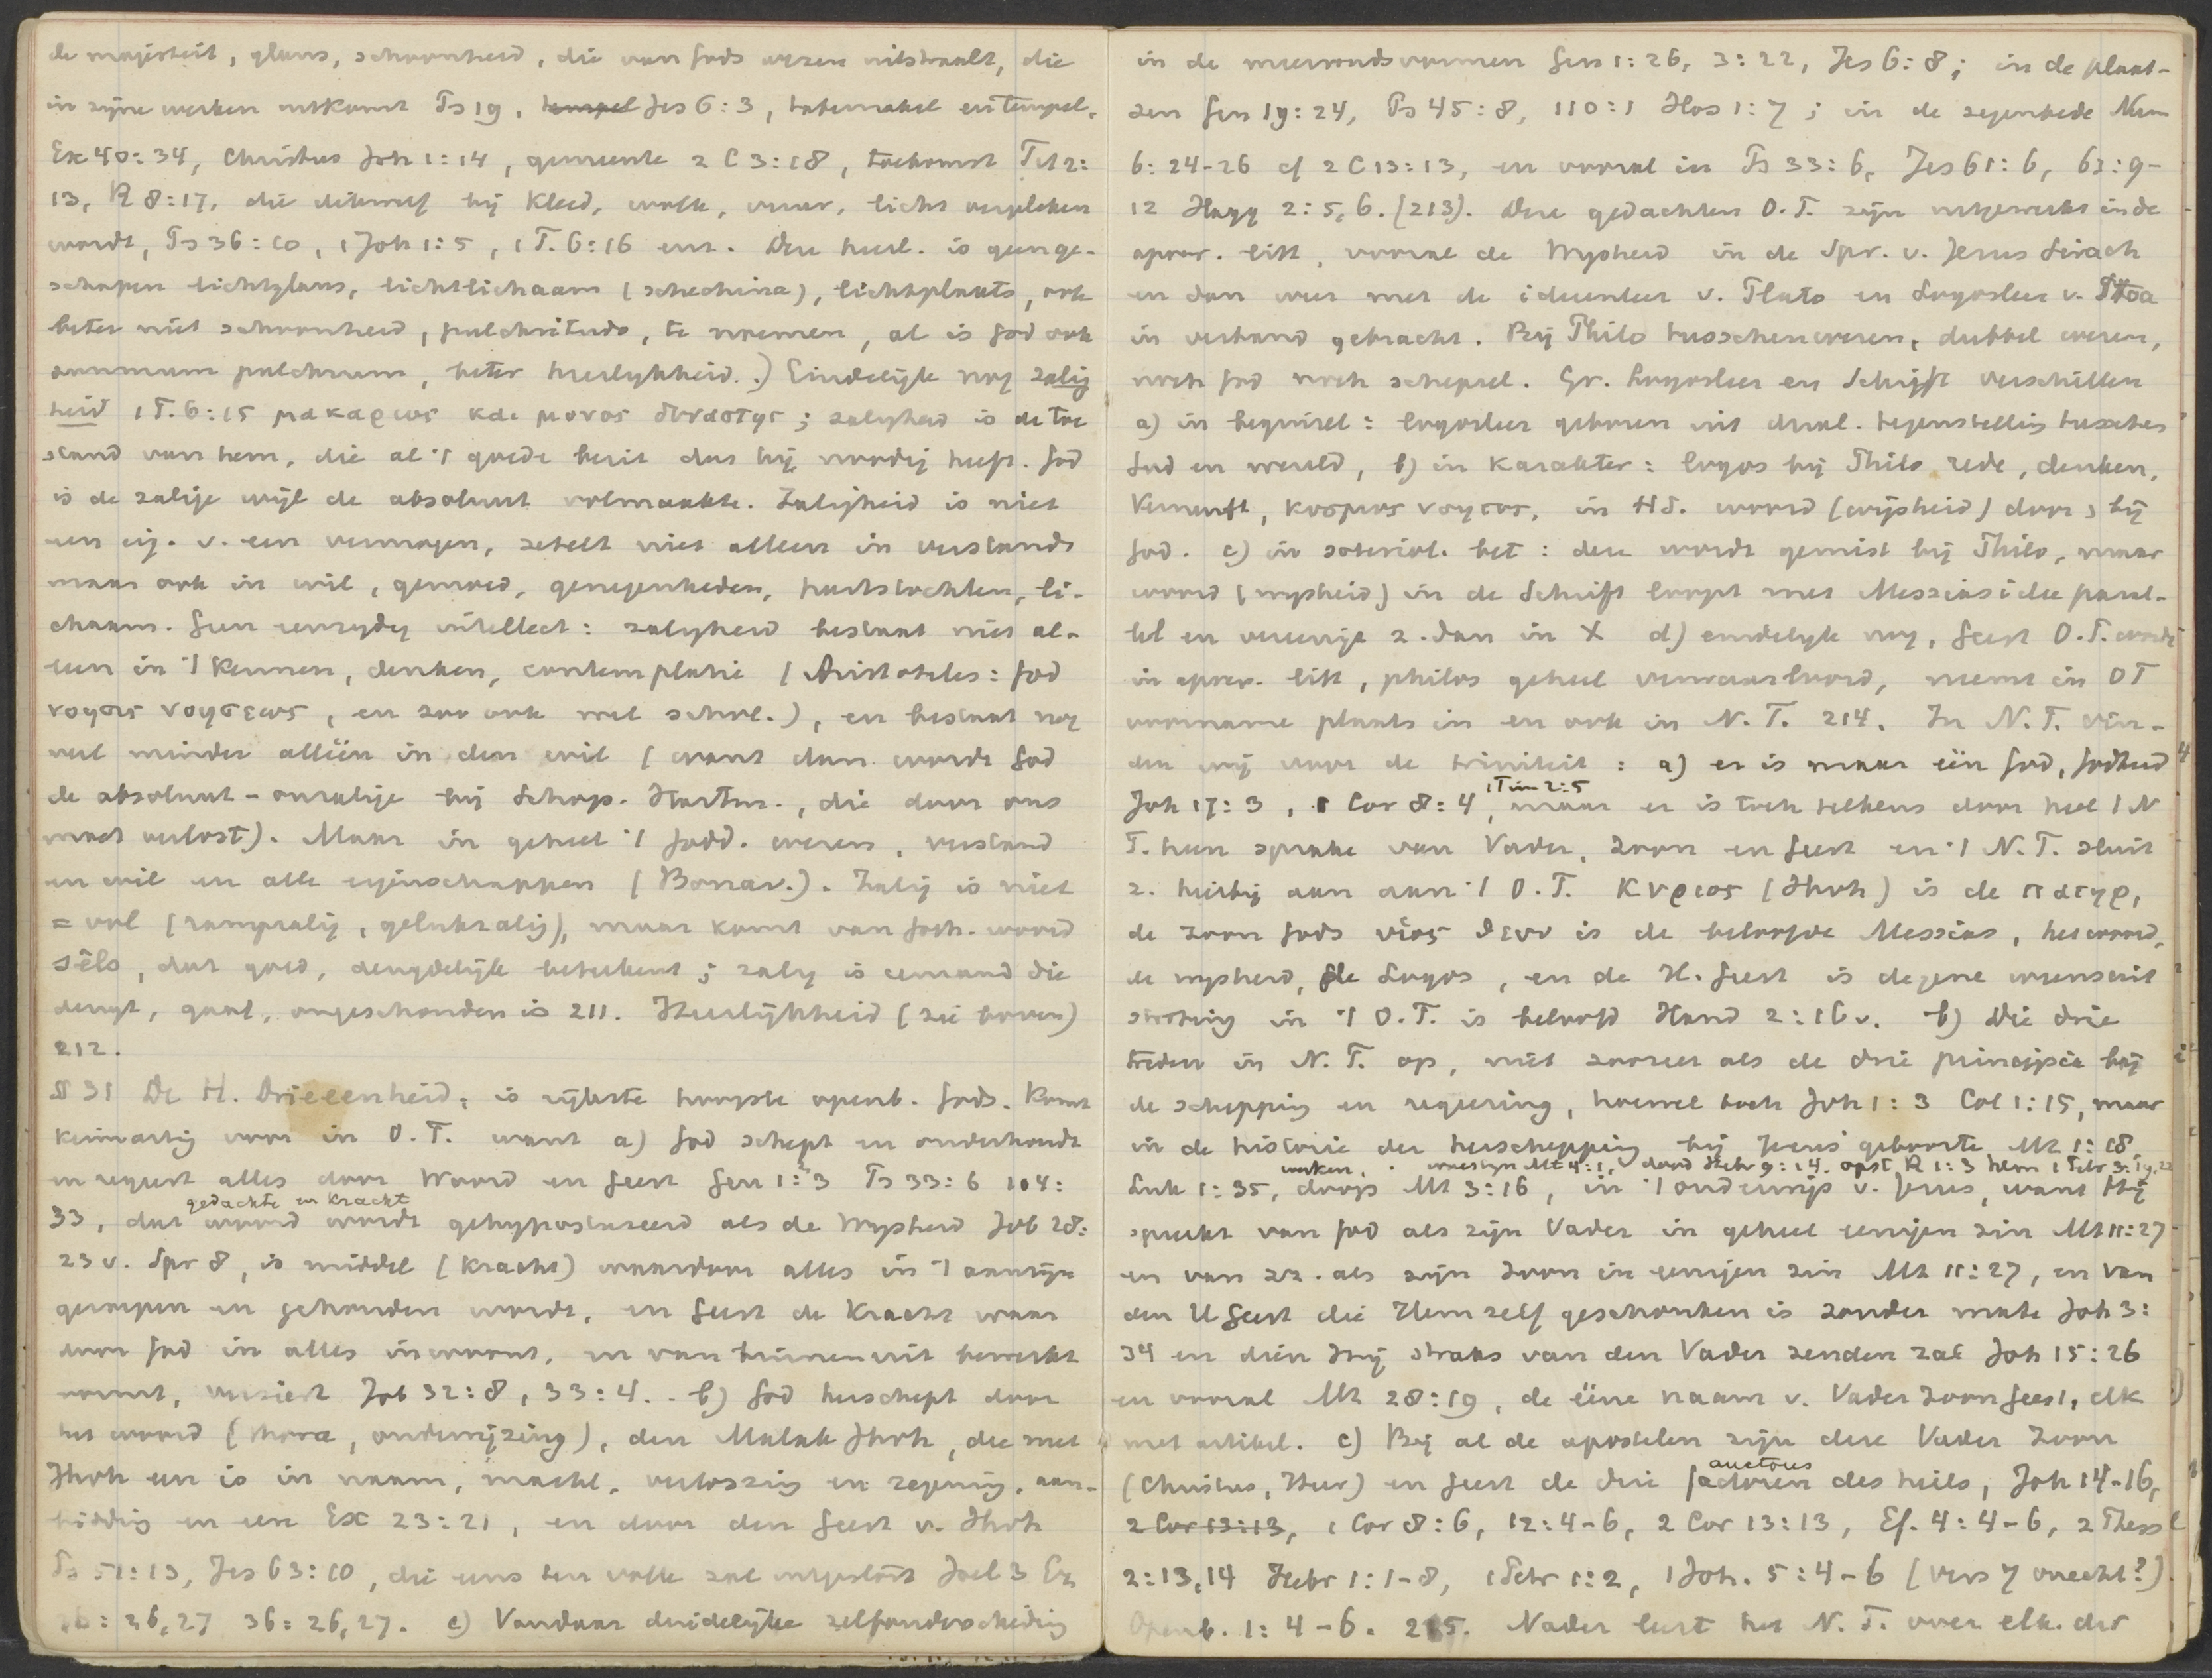 de majesteit, glans, schoonheid, die van Gods wezen uitstraalt, die
in zijne werken uitkomt Ps 19, tempel Jes 6:3, tabernakel en tempel,
Ex 40:34, Christus Joh 1:14, gemeente 2 C 3:18, toekomst Tit 2:
13, R 8:17, die dikwerf bij kleed, wolk, vuur, licht vergeleken
wordt, Ps 36:10, 1 Joh 1:5, 1 T. 6:16 enz. Deze heerl. is geen ge-
schapen lichtglans, lichtlichaam (schechina), lichtplaats, ook
beter niet schoonheid, pulchritudo, te noemen, al is God ook
summum pulchrum, beter heerlijkheid.) Eindelijk nog zalig
heid 1 T. 6:15 μακαριος και μονος δυναστης; zaligheid is de toe
stand van hem, die al 't goede bezit dat hij noodig heeft. God
is de zalige wijl de absoluut volmaakte. Zaligheid is niet
een eig. v. een vermogen, zetelt niet alleen in verstand
maar ook in wil, gemoed, genegenheden, hartstochten, li-
chaam. Geen eenzijdig intellect: zaligheid bestaat niet al-
leen in 't kennen, denken, contemplatie (Aristoteles: God
νοησις νοησεως, en zoo ook wel schol.), en bestaat nog
veel minder alléén in den wil (want dan wordt God
de absoluut-onzalige bij Schop. Hartm., die door ons
moet verlost). Maar in geheel 't Godd. wezen, verstand
en wil en alle eigenschappen (Bonav.). Zalig is niet
= vol (rampzalig, gelukzalig), maar komt van Goth. woord
sêls, dat goed, deugdelijk beteekent; zalig is iemand die
deugt, gaaf, ongeschonden is 211. Heerlijkheid (zie boven)
212.
§ 31 De H. Drieeenheid, is rijkste hoogste openb. Gods. Komt
kiemartig voor in O.T. want a) God schept en onderhoudt
en regeert alles door Woord en Geest Gen 1:2 3 Ps 33:6 104:
gedachte en kracht
33, dat woord wordt gehypostaseerd als de Wijsheid Job 28:
23 v. Spr 8, is middel (kracht) waardoor alles in 't aanzijn
geroepen en gehouden wordt, en Geest de kracht waar
door God in alles inwoont, en van binnen uit bewerkt
vormt, versiert Job 32:8, 33:4. . b) God herschept door
het woord (thora, onderwijzing), den Malak Jhvh, die met
Jhvh een is in naam, macht, verlossing en zegening, aan-
bidding en eere Ex 23:21, en door den Geest v. Jhvh
Ps 51:13, Jes 63:10, die eens ten volle zal uitgestort Joel 3 Ez
36:26,27 36:26,27. c) Vandaar duidelijke zelfonderscheiding
in de meervoudsvormen Gen 1:26, 3:22, Jes 6:8; in de plaat-
sen Gen 19:24, Ps 45:8, 110:1 Hos 1:7; in de zegenbede Num
6:24-26 cf 2 C 13:13, en vooral in Ps 33:6, Jes 61:6, 63:9-
12 Hagg 2:5,6. (213). Deze gedachten O.T. zijn uitgewerkt in de
apocr. litt., vooral de Wijsheid in de Spr. v. Jezus Sirach
en dan weer met de ideeenleer v. Plato en Logosleer v. Stoa
in verband gebracht. Bij Philo tusschenwezen, dubbel wezen,
noch God noch schepsel. Gr. Logosleer en Schrift verschillen
a) in beginsel: logosleer geboren uit dual. tegenstelling tusschen
God en wereld, b) in karakter: logos bij Philo rede, denken,
Vernunft, κοσμος νοητος, in HS. woord (wijsheid) door, bij
God. c) in soteriol. bet: deze wordt gemist bij Philo, maar
woord (wijsheid) in de Schrift loopt met Messiasidee paral-
lel en vereenige z. dan in X d) eindelijk nog, Geest O.T. wordt
in apocr. litt, philos geheel verwaarloosd, neemt in OT
voorname plaats in en ook in N.T. 214. In N.T. vin-
den wij voor de triniteit: a) er is maar één God, Godheid
1 Tim 2:5
Joh 17:3, 1 Cor 8:4, maar er is toch telkens door heel 't N
T. heen sprake van Vader, Zoon en Geest en 't N.T. sluit
z. hierbij aan aan 't O.T. Κυριος (Jhvh) is de πατηρ,
de zoon Gods υιος θεου is de beloofde Messias, het woord,
de wijsheid, de Logos, en de H. Geest is degene wiens uit
storting in 't O.T. is beloofd Hand 2:16 v. b) Die drie
treden in N.T. op, niet zoozeer als de drie principia bij
de schepping en regeering, hoewel toch Joh 1:3 Col 1:15, maar
in de historie der herschepping bij Jezus' geboorte Mt 1:18,
werken, woestijn Mt 4:1, dood Hebr 9:14, opst. R 1:3 hem 1 Petr 3:19,22
Luk 1:35, doop Mt 3:16, in 't onderwijs v. Jezus, want Hij
spreekt van God als zijn Vader in geheel eenigen zin Mt 11:27
en van zz. als zijn Zoon in eenigen zin Mt 11:27, en van
den H Geest die Hem zelf geschonken is zonder mate Joh 3:
34 en dien Hij straks van den Vader zenden zal Joh 15:26
en vooral Mt 28:19, de ééne naam v. Vader Zoon Geest, elk
met artikel. c) Bij al de apostelen zijn deze Vader Zoon
auctores
(Christus, Heer) en Geest de drie factoren des heils, Joh 14-16,
2 Cor 13:13, 1 Cor 8:6, 12:4-6, 2 Cor 13:13, Ef. 4:4-6, 2 Thess
2:13,14 Hebr 1:1-8, 1 Petr 1:2, 1 Joh. 5:4-6 (vers 7 onecht?)
Openb. 1:4-6. 215. Nader leert het N.T. over elk der